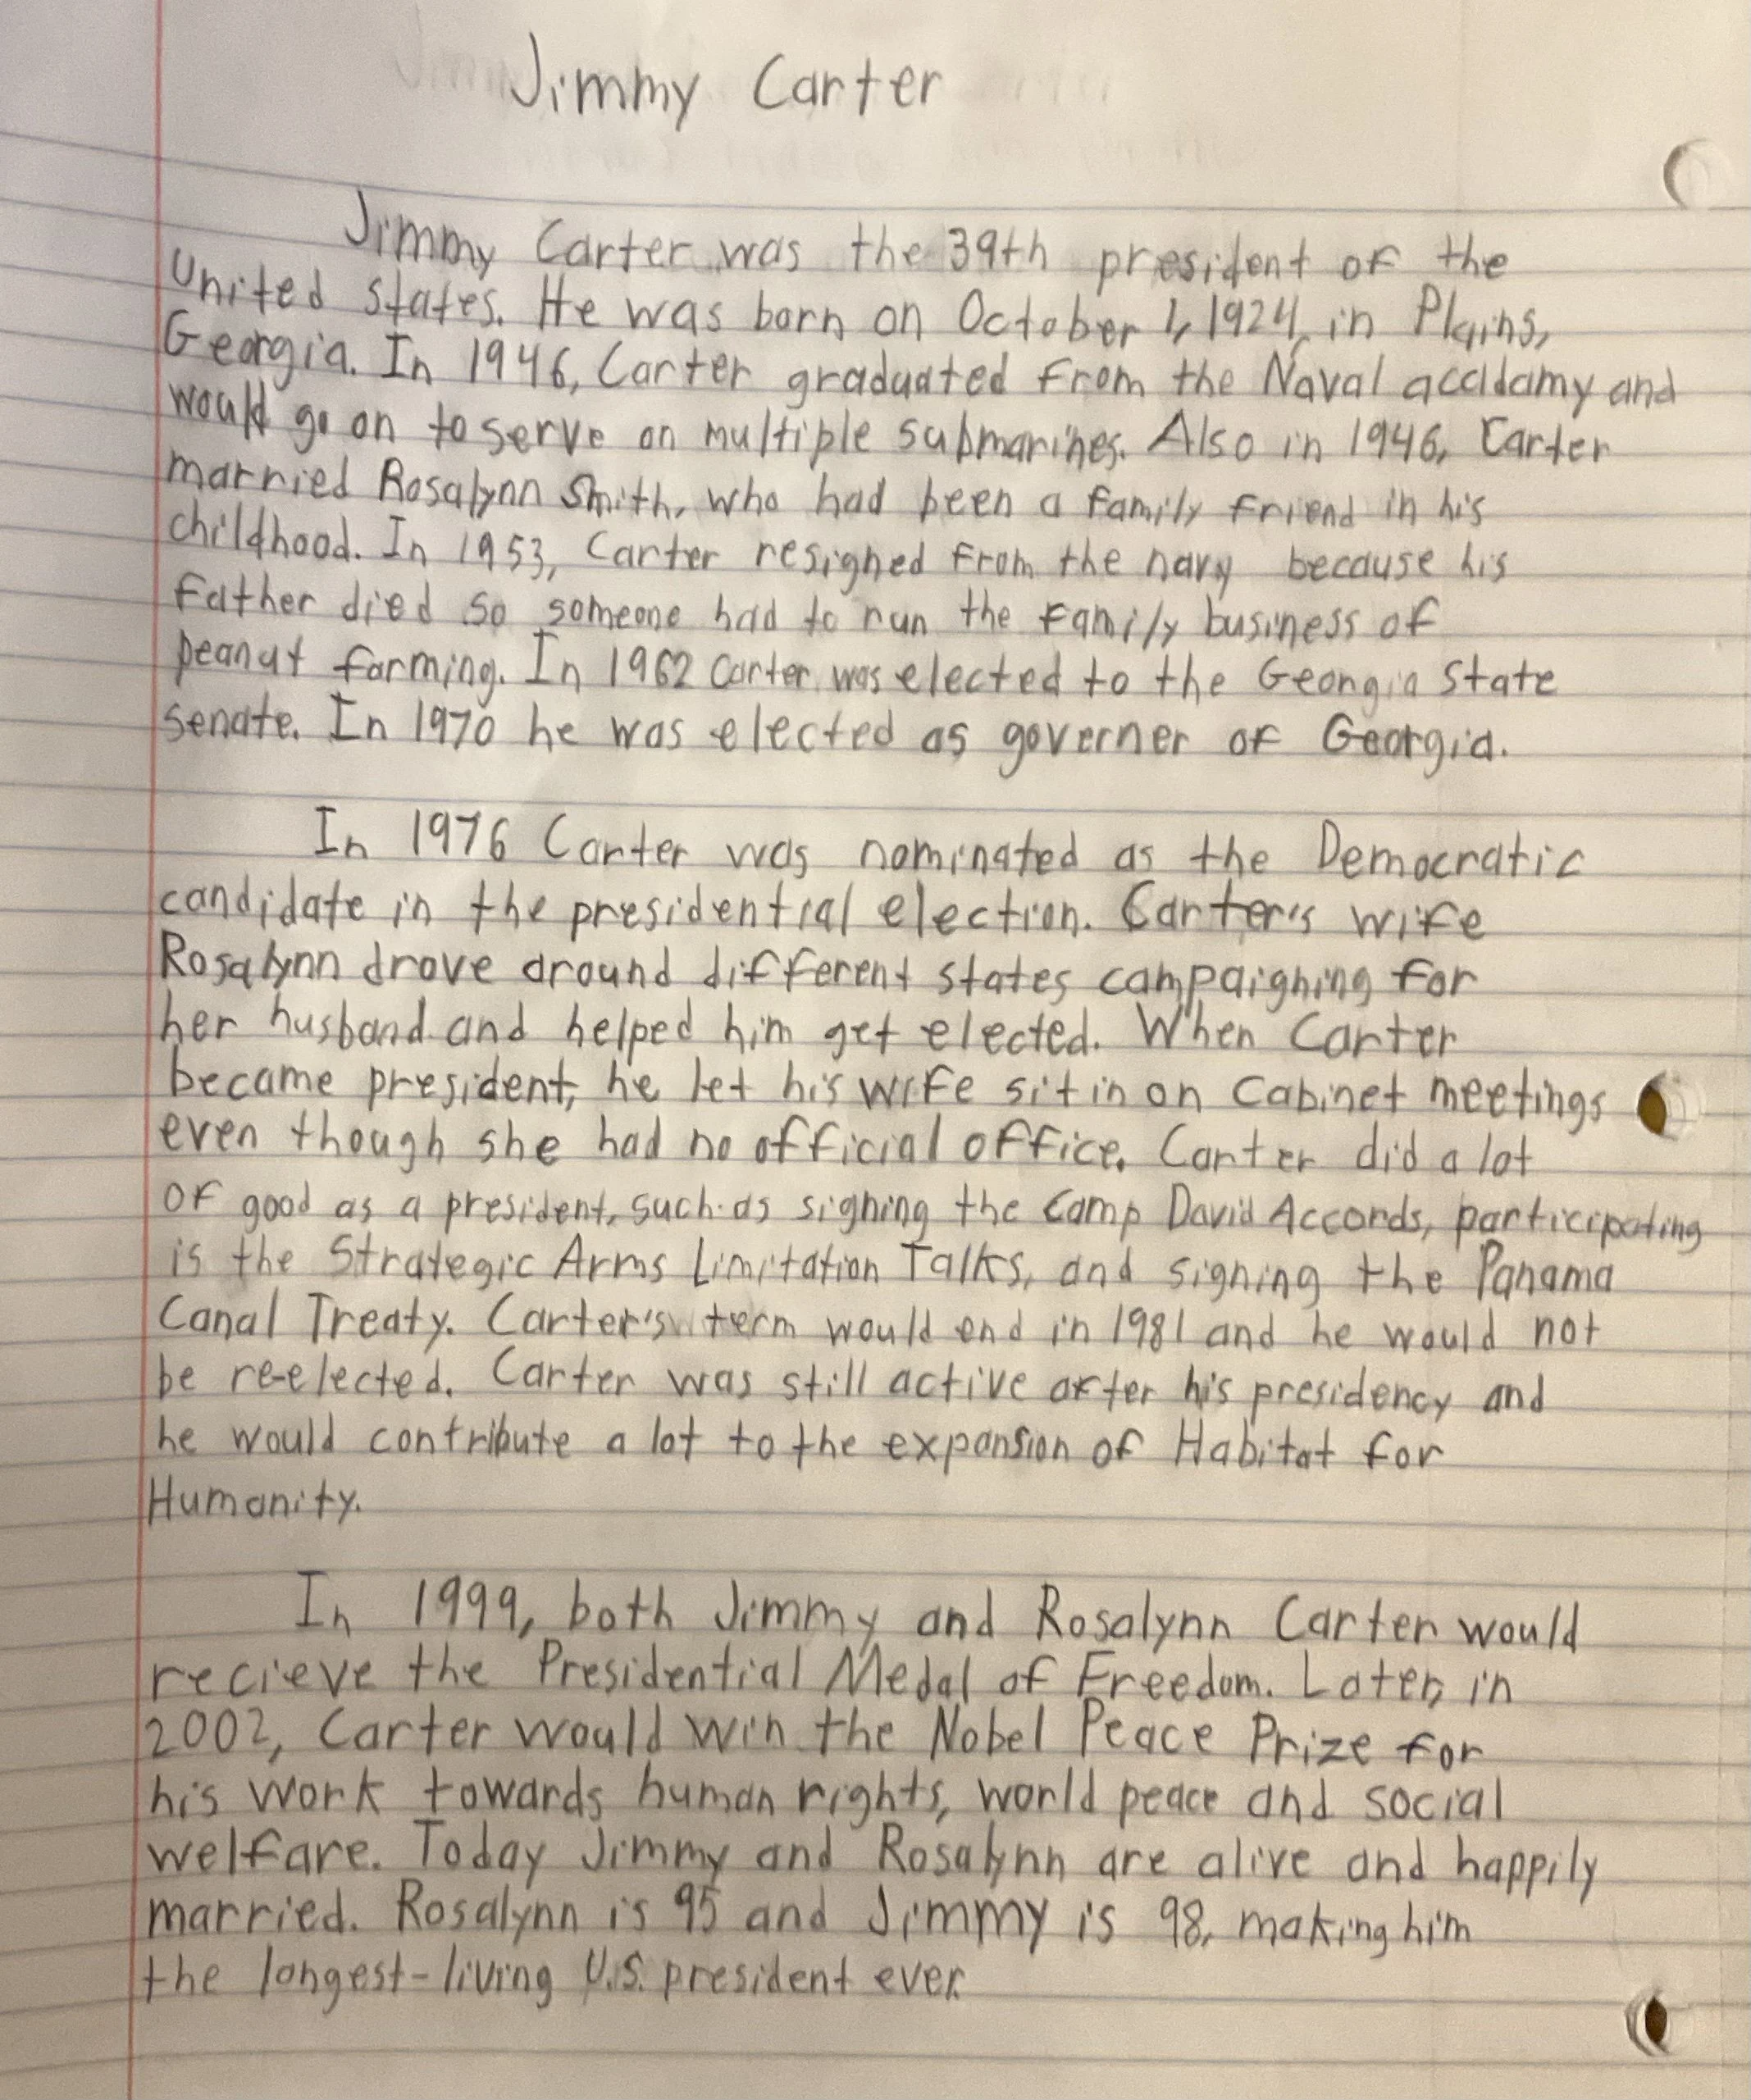 Jimmy Carter
Jimmy Carter was the 39th president of the
United States. He was born on October 1, 1924, in Plains,
Georgia. In 1946, Carter graduated from the Naval accidamy and
would go on to serve on multiple submarines. Also in 1946, Carter
married Rosalynn Smith, who had been a family friend in his
childhood. In 1953, Carter resigned from the navy because his
father died so someone had to run the family business of
peanut farming. In 1962 Carter was elected to the Georgia State
senate. In 1970 he was elected as governer of Georgia.
In 1976 Carter was nominated as the Democratic
candidate in the presidential election. Carter's wife
Rosalynn drove around different states campaigning for
her husband and helped him get elected. When Carter
became president, he let his wife sit in on Cabinet meetings
even though she had no official office. Carter did a lot
of good as a president, such as signing the Camp David Accords, participating
is the Strategic Arms Limitation Talks, and signing the Panama
Canal Treaty. Carter's term would end in 1981 and he would not
be re-elected. Carter was still active after his presidency and
he would contribute a lot to the expansion of Habitat for
Humanity.
In 1999, both Jimmy and Rosalynn Carter would
recieve the Presidential Medal of Freedom. Later, in
2002, Carter would win the Nobel Peace Prize for
his work towards human rights, world peace and social
welfare. Today Jimmy and Rosalynn are alive and happily
married. Rosalynn is 95 and Jimmy is 98, making him
the longest-living U.S. president ever.